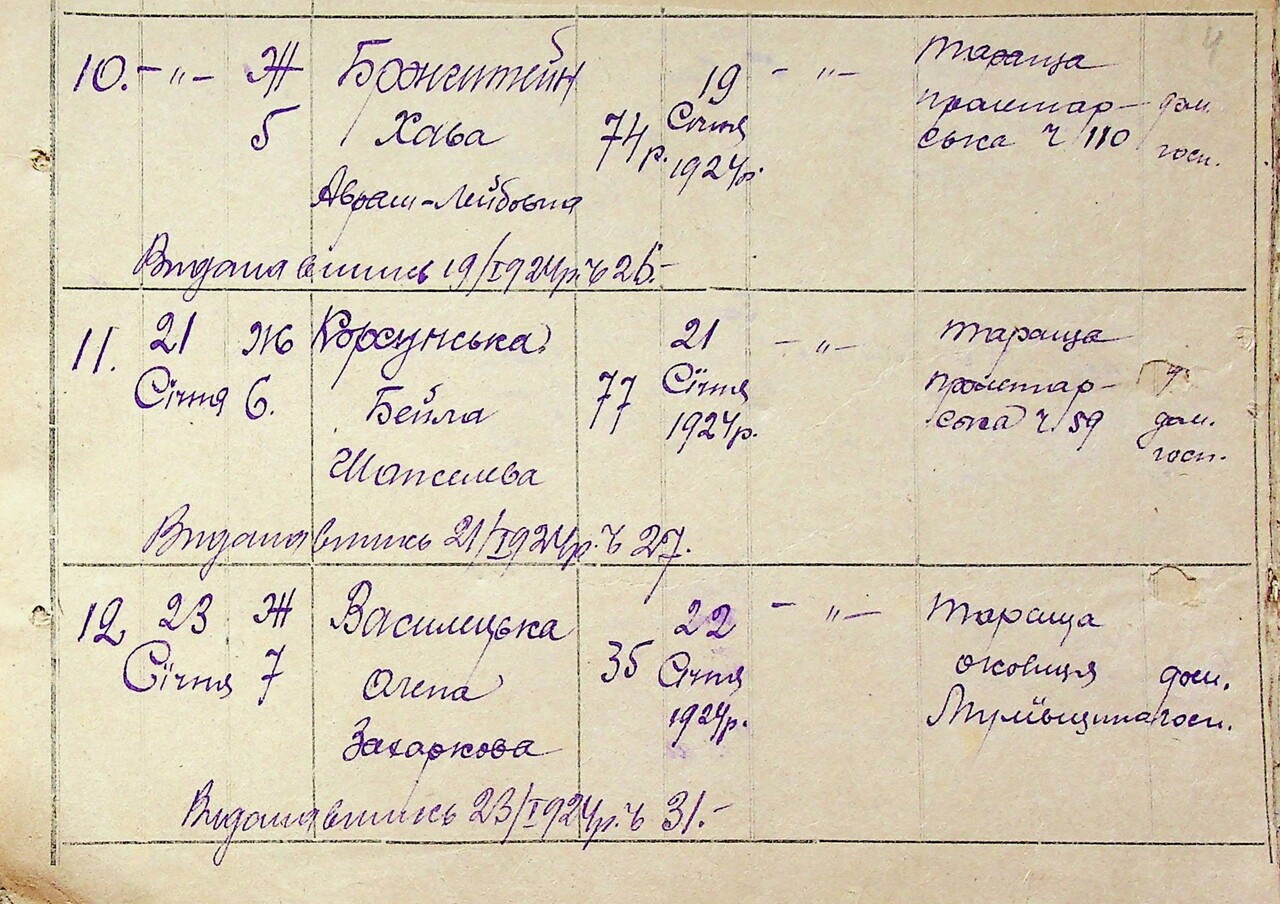 10. - „ - Ж 5
Бронштейн
Хава
Аврам-Лейбовна
74 р.
19
Січня
1924 р.
- „ -
Тараща
пролетар-
ська Ч 110
дом.
госп.
4
Видана впись 19/I 1924 р. Ч 26.-
11.
21
Січня
Ж
6.
Корсунська
Бейла
77
21
Січня
1924 р.
- „ -
Тараща
пролетар-
ська Ч 59
дом.
госп.
Видана впись 21/I 1924 р. Ч 27.
12
23
Січня
Ж
7
Василецька
Олена
Захаркова
35
22
Січня
1924 р.
- „ -
Тараща
околиця
дом.
госп.
Видана впись 23/I 1924 р. Ч 31.-